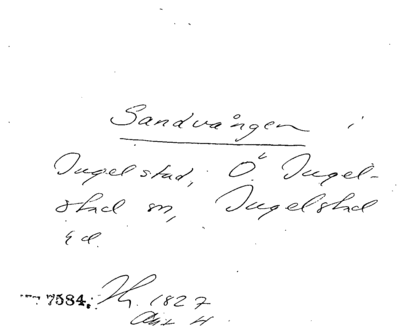 Sandvången i
Ingelstad, Ö Ingel-
stad sn, Ingelstad
hd.
7584. 1827